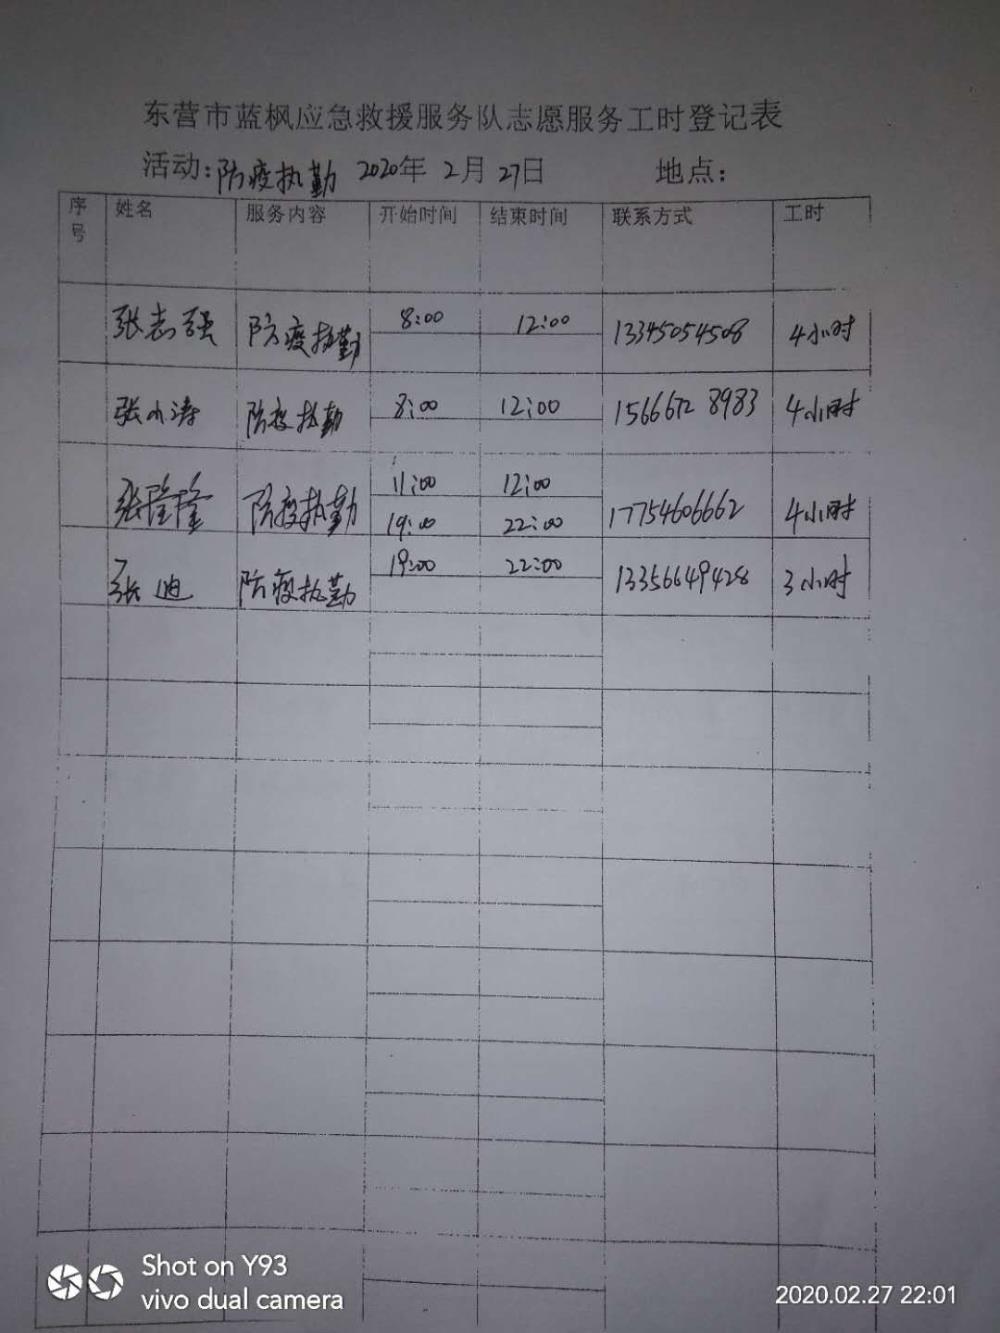 东营市蓝枫应急救援服务队志愿服务工时登记表
活动:防疫执勤 2020年 2月 27日 地点:
序号 姓名 服务内容 开始时间 结束时间 联系方式 工时
张志强 防疫执勤 8:00 12:00 13345054508 4小时
张小涛 防疫执勤 8:00 12:00 1566672 8983 4小时
张隆隆 防疫执勤 11:00 12:00 17754606662 4小时
19:00 22:00
张迪 防疫执勤 19:00 22:00 13356649428 3小时
Shot on Y93
vivo dual camera
2020.02.27 22:01